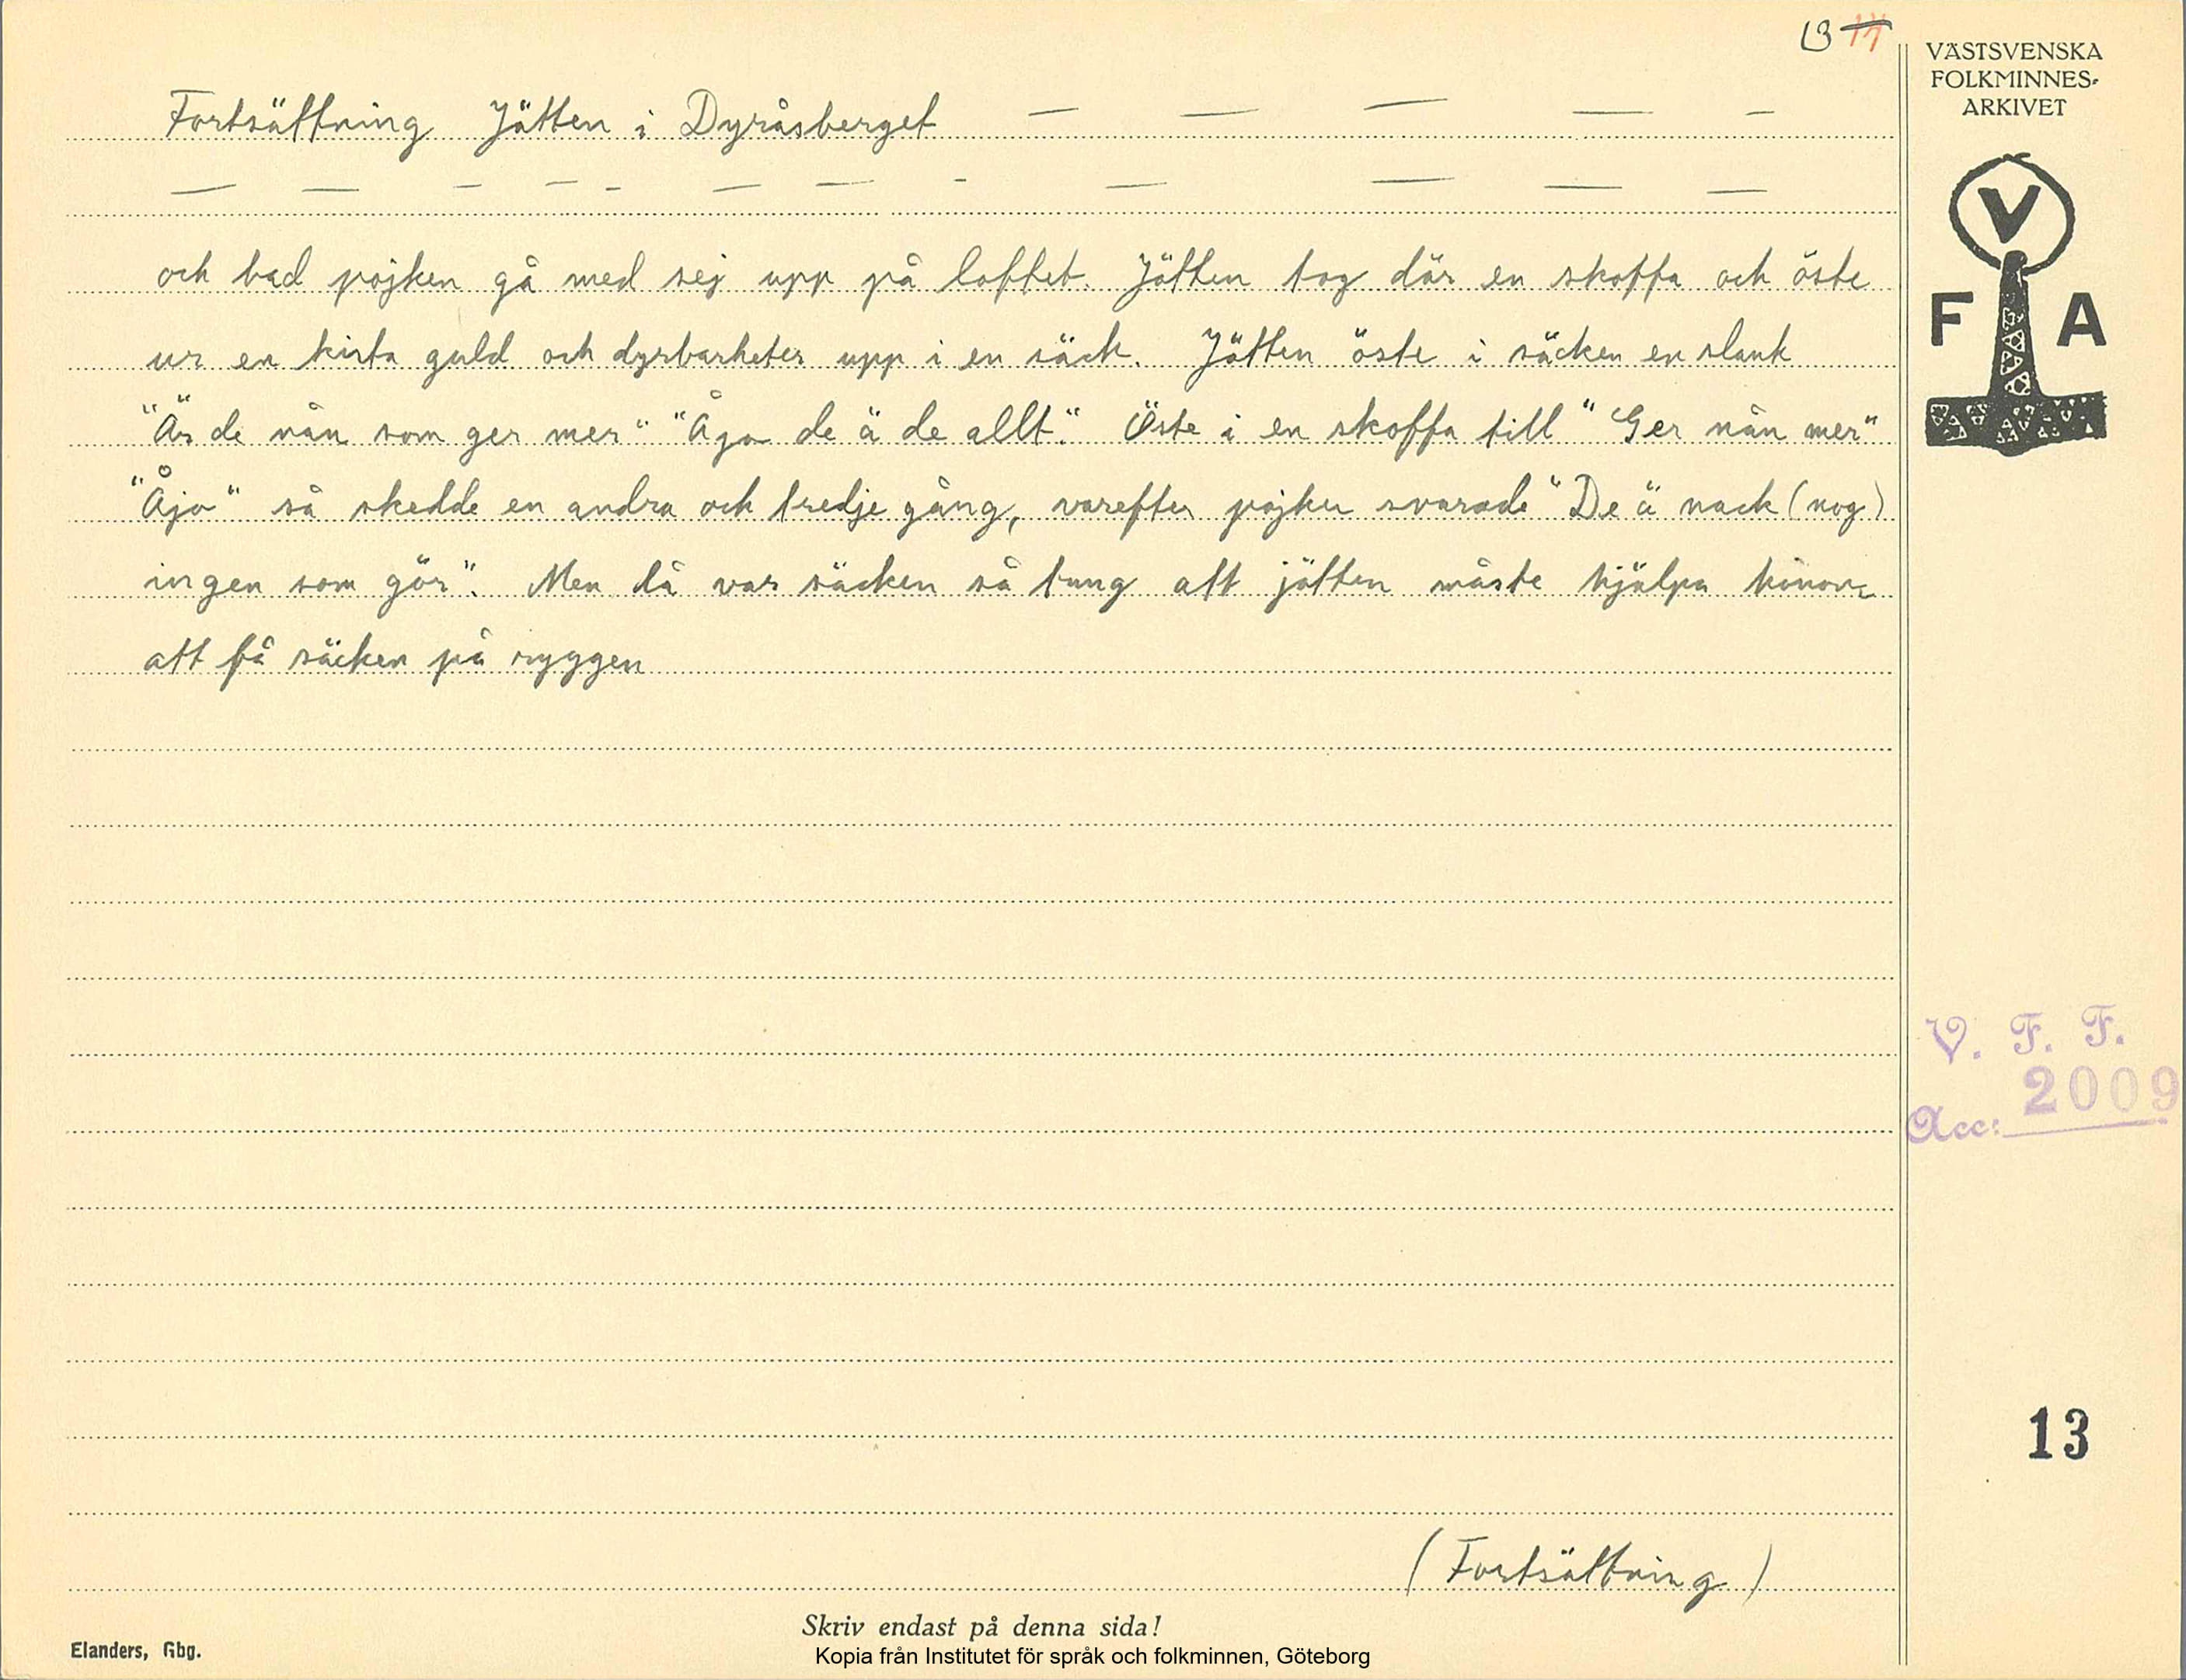 13 11
VÄSTSVENSKA
FOLKMINNES-
ARKIVET
V
F A
Fortsättning Jätten i Dyråsberget — — — — —
— — — — — — — — — — — —
och bad pojken gå med sej upp på loftet. Jätten tog där en skoffa och öste
ur en kista guld och dyrbarheter upp i en säck. Jätten öste i säcken en slank
"Är de nån som ger mer" "Åjo de ä de allt". Öste i en skoffa till "Ger nån mer"
"Åjo" så skedde en andra och tredje gång, varefter pojken svarade "De ä nack (nog)
ingen som gör". Men då var säcken så tung att jätten måste hjälpa honom
att få säcken på ryggen
V. F. F.
Acc: 2009
13
(Fortsättning)
Skriv endast på denna sida!
Elanders, Gbg.
Kopia från Institutet för språk och folkminnen, Göteborg